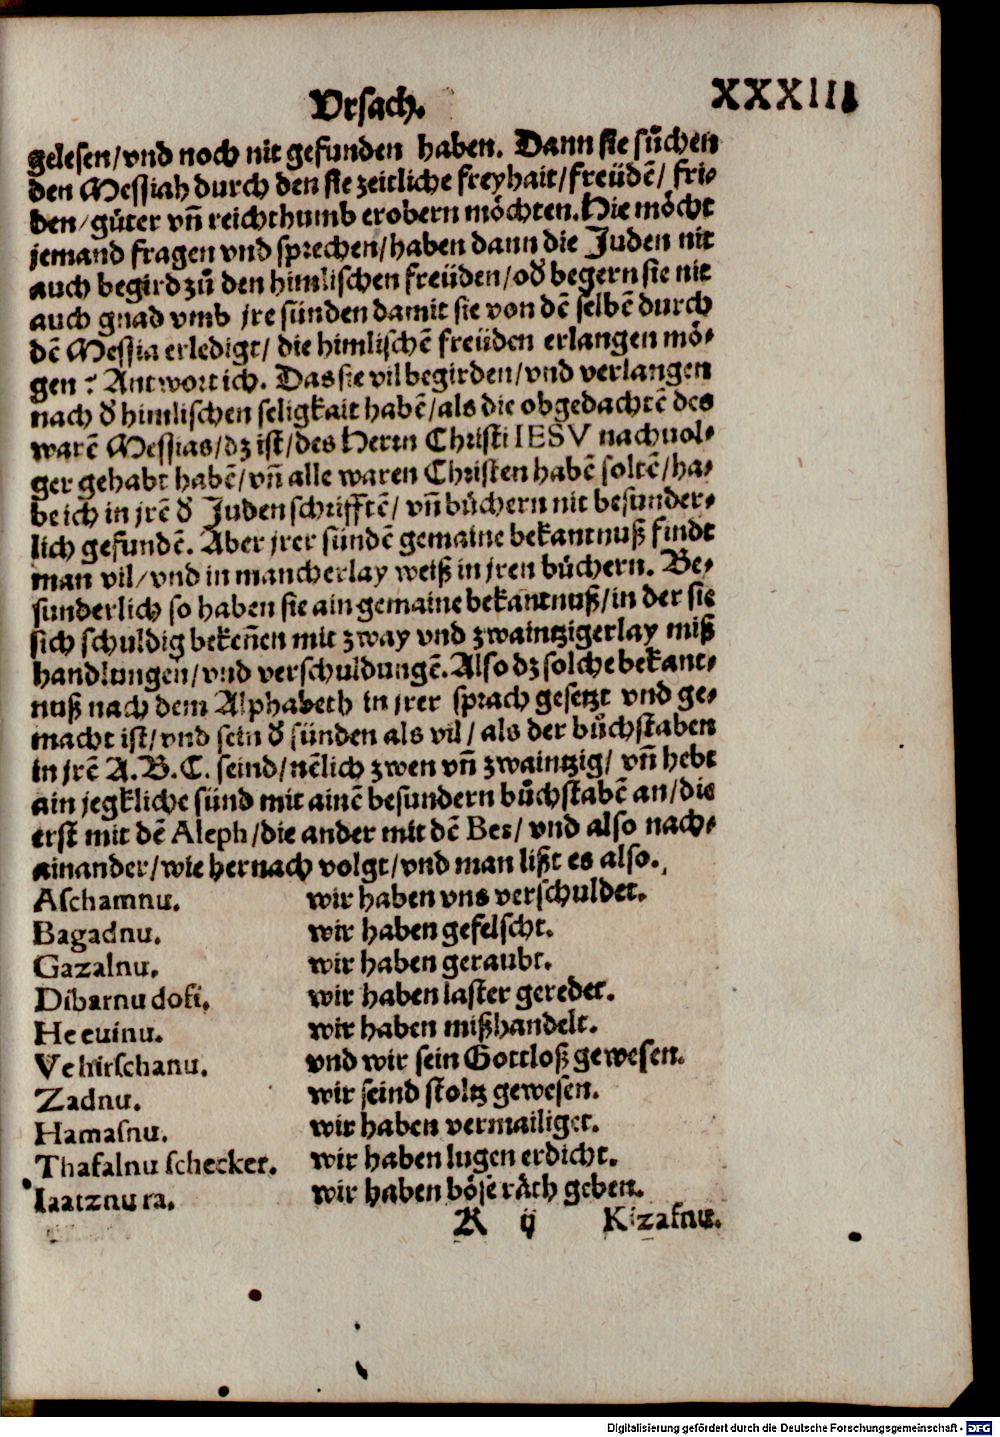 Vrsach. XXXIII
gelesen/vnd noch nit gefunden haben. Dann sie sůchen
den Messiah durch den sie zeitliche freyhait/freüdē/ fri-
den/güter vn̄ reichthumb erobern möchten. Hie möcht
jemand fragen vnd sprechen/haben dann die Juden nit
auch begird zů den himlischen freüden/oď begern sie nit
auch gnad vmb jre sünden damit sie von dē selbē durch
dē Messia erledigt/ die himlischē freüden erlangen mö-
gen? Antwort ich. Das sie vil begirden/vnd verlangen
nach ď himlischen seligkait habē/als die obgedachtē des
warē Messias/dz ist/des Herrn Christi IESV nachuol-
ger gehabt habē/vn̄ alle waren Christen habē soltē/ha-
be ich in jrē ď Juden schrifftē/ vn̄ bůchern nit besunder-
lich gefundē. Aber jrer sündē gemaine bekantnuß findt
man vil/vnd in mancherlay weiß in jren bůchern. Be-
sunderlich so haben sie ain gemaine bekantnuß/in der sie
sich schuldig bekēnen mit zway vnd zwaintzigerlay miß
handlungen/vnd verschuldungē. Also dz solche bekant-
nuß nach dem Alphabeth in jrer sprach gesetzt vnd ge-
macht ist/vnd sein ď sünden als vil/ als der bůchstaben
in jrē A.B.C. seind/nēlich zwen vn̄ zwaintzig/ vn̄ hebt
ain jegkliche sünd mit ainē besundern bůchstabē an/die
erst mit dē Aleph/die ander mit dē Bes/ vnd also nach-
ainander/wie hernach volgt/vnd man lißt es also.
Aschamnu. wir haben vns verschuldet.
Bagadnu. wir haben gefelscht.
Gazalnu. wir haben geraubt.
Dibarnu dofi. wir haben laster geredet.
He euinu. wir haben mißhandelt.
Ve hirschanu. vnd wir sein Gottloß gewesen.
Zadnu. wir seind stoltz gewesen.
Hamasnu. wir haben vermailiget.
Thafalnu schecker. wir haben lugen erdicht.
Iaatznu ra. wir haben böse räth geben.
K ij Kizafnu.
Digitalisierung gefördert durch die Deutsche Forschungsgemeinschaft - DFG